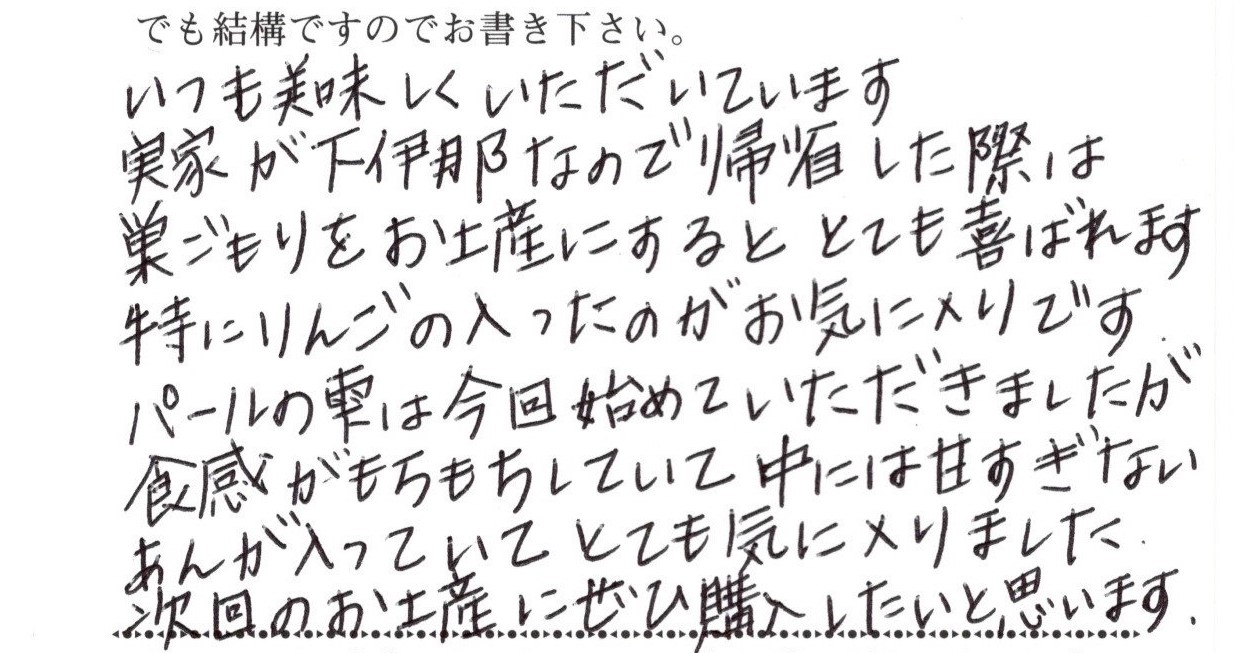 でも結構ですのでお書き下さい。
いつも美味しくいただいています
実家が下伊那なので帰省した際は
巣ごもりをお土産にするととても喜ばれます
特にりんごの入ったのがお気に入りです
パールの雫は今回始めていただきましたが
食感がもちもちしていて中には甘すぎない
あんが入っていてとても気に入りました.
次回のお土産にぜひ購入したいと思います.